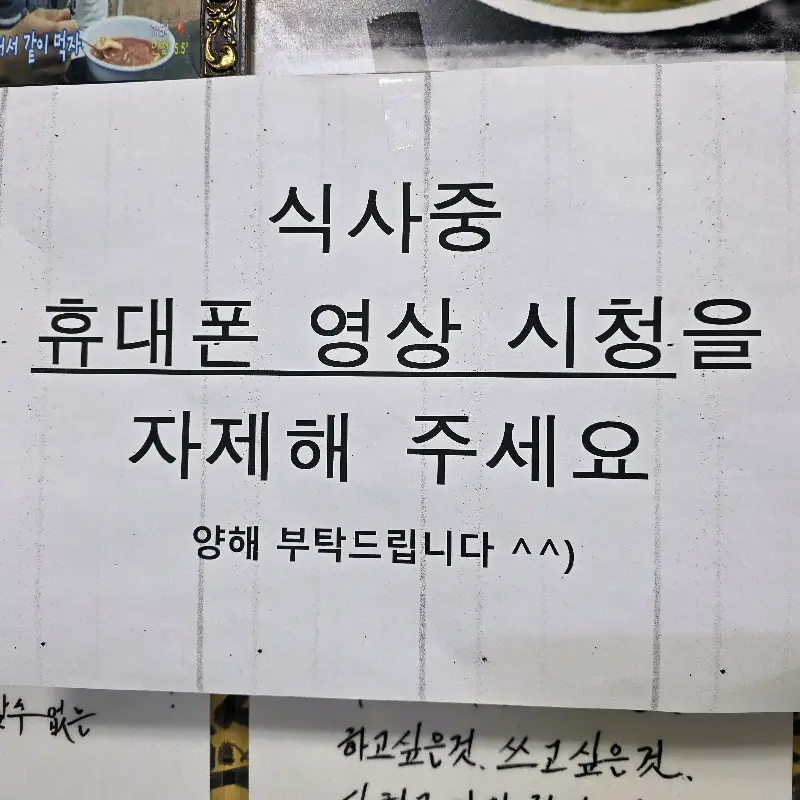 같이 먹자
식사중
휴대폰 영상 시청을
자제해 주세요
양해 부탁드립니다 ^^)
없는
하고싶은것, 쓰고싶은것,